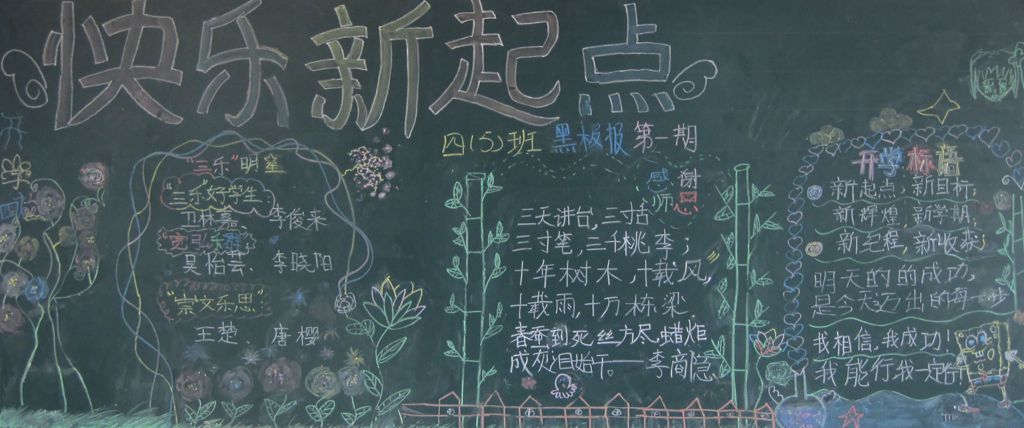 快乐新起点
四(5)班 黑板报 第一期
"三乐"明星
"三乐"好学生
卫林嘉、李俊来
吴怡芸、李晓阳
"崇文乐思"
王楚、唐樱
感谢
师恩
三天讲台,三寸舌
三寸笔,三千桃李;
十年树木,十载风,
十载雨,十万栋梁
春蚕到死丝方尽,蜡炬
成灰泪始干。——李商隐
开学标语
新起点,新目标
新辉煌,新学期,
新主程,新收获;
明天的的成功,
是今天迈出的每一步
我相信,我成功!
我能行我一定行